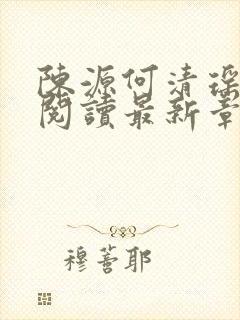 陳源何清瑤
閱讀最新章
穆薈耶